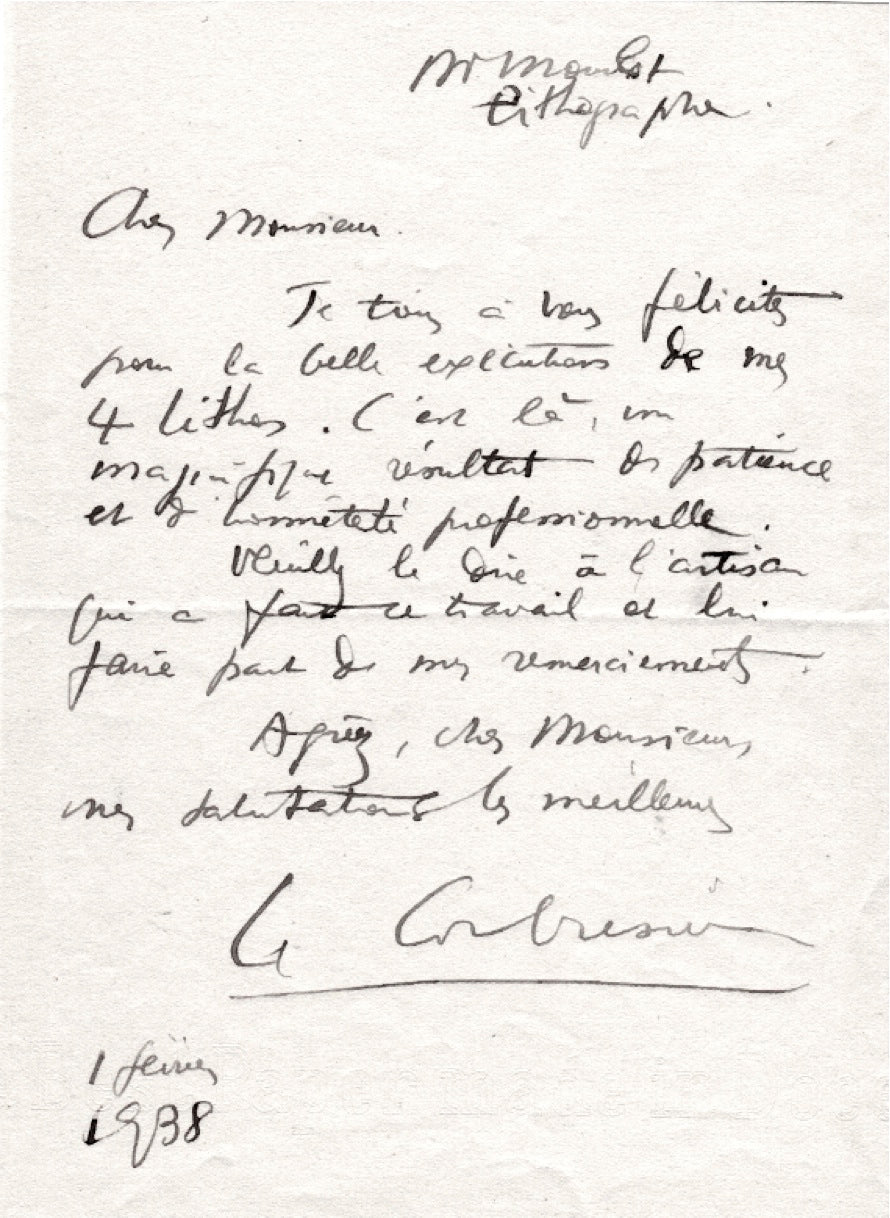 Mr Mourlot
Lithographe.
Cher Monsieur.
Je tiens à vous féliciter
pour la belle exécution de mes
4 Lithos. C'est là, un
magnifique résultat de patience
et d'honnêteté professionnelle.
Veuillez le dire à l'artisan
qui a fait ce travail et lui
faire part de mes remerciements.
Agréez, cher Monsieur,
mes salutations les meilleures
Le Corbusier
1 février
1938